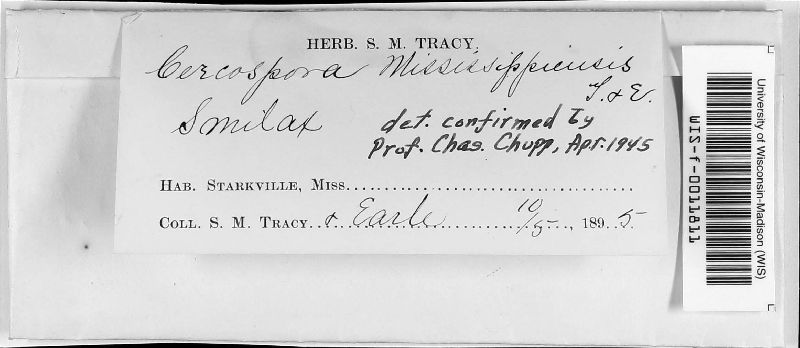 HERB. S. M. TRACY,
Cercospora Mississippiensis
T. & E.
Smilax
det. confirmed by
Prof. Chas. Chupp, Apr. 1945
HAB. STARKVILLE, MISS.......................................
COLL. S. M. TRACY..& Earle............10/5...., 189..5
University of Wisconsin-Madison (WIS)
WIS-f-0011811